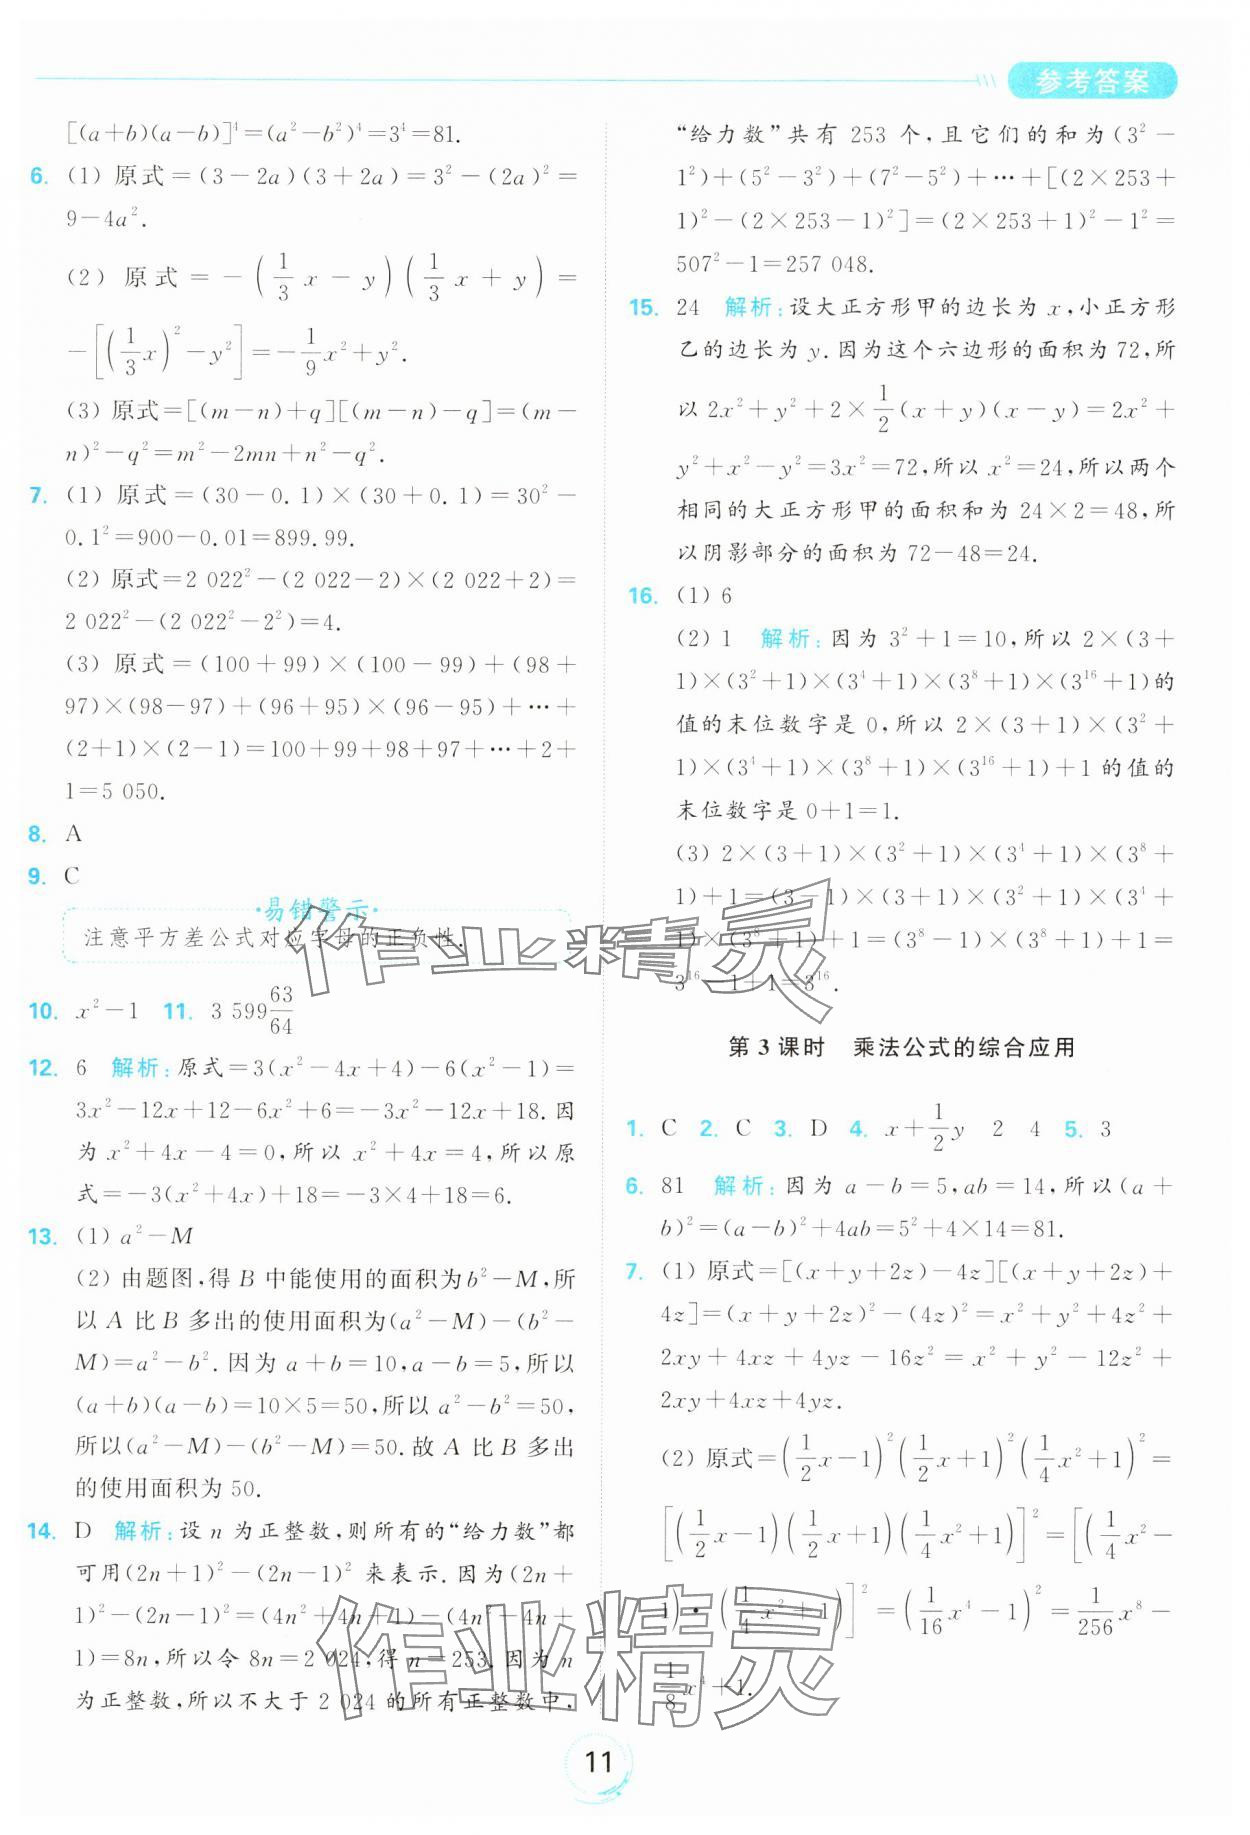 参考答案
[(a+b)(a-b)]⁴=(a²-b²)⁴=3⁴=81.
6. (1) 原式=(3-2a)(3+2a)=3²-(2a)²=
9-4a².
(2) 原式=-(1/3 x-y)(1/3 x+y)=
-[(1/3 x)²-y²]=-1/9 x²+y².
(3) 原式=[(m-n)+q][(m-n)-q]=(m-
n)²-q²=m²-2mn+n²-q².
7. (1) 原式=(30-0.1)×(30+0.1)=30²-
0.1²=900-0.01=899.99.
(2) 原式=2 022²-(2 022-2)×(2 022+2)=
2 022²-(2 022²-2²)=4.
(3) 原式=(100+99)×(100-99)+(98+
97)×(98-97)+(96+95)×(96-95)+…+
(2+1)×(2-1)=100+99+98+97+…+2+
1=5 050.
8. A
9. C
·易错警示·
注意平方差公式对应字母的正负性.
10. x²-1 11. 3 599 63/64
12. 6 解析:原式=3(x²-4x+4)-6(x²-1)=
3x²-12x+12-6x²+6=-3x²-12x+18.因
为x²+4x-4=0,所以x²+4x=4,所以原
式=-3(x²+4x)+18=-3×4+18=6.
13. (1) a²-M
(2) 由题图,得B中能使用的面积为b²-M,所
以A比B多出的使用面积为(a²-M)-(b²-
M)=a²-b².因为a+b=10,a-b=5,所以
(a+b)(a-b)=10×5=50,所以a²-b²=50,
所以(a²-M)-(b²-M)=50.故A比B多出
的使用面积为50.
14. D 解析:设n为正整数,则所有的“给力数”都
可用(2n+1)²-(2n-1)²来表示.因为(2n+
1)²-(2n-1)²=(4n²+4n+1)-(4n²-4n+
1)=8n,所以令8n=2 024,得n=253.因为n
为正整数,所以不大于2 024的所有正整数中,
“给力数”共有253个,且它们的和为(3²-
1²)+(5²-3²)+(7²-5²)+…+[(2×253+
1)²-(2×253-1)²]=(2×253+1)²-1²=
507²-1=257 048.
15. 24 解析:设大正方形甲的边长为x,小正方形
乙的边长为y.因为这个六边形的面积为72,所
以2x²+y²+2×1/2(x+y)(x-y)=2x²+
y²+x²-y²=3x²=72,所以x²=24,所以两个
相同的大正方形甲的面积和为24×2=48,所
以阴影部分的面积为72-48=24.
16. (1) 6
(2) 1 解析:因为3²+1=10,所以2×(3+
1)×(3²+1)×(3⁴+1)×(3⁸+1)×(3¹⁶+1)的
值的末位数字是0,所以2×(3+1)×(3²+
1)×(3⁴+1)×(3⁸+1)×(3¹⁶+1)+1的值的
末位数字是0+1=1.
(3) 2×(3+1)×(3²+1)×(3⁴+1)×(3⁸+
1)+1=(3-1)×(3+1)×(3²+1)×(3⁴+
1)×(3⁸+1)+1=(3⁸-1)×(3⁸+1)+1=
3¹⁶-1+1=3¹⁶.
第3课时 乘法公式的综合应用
1. C 2. C 3. D 4. x+1/2 y 2 4 5. 3
6. 81 解析:因为a-b=5,ab=14,所以(a+
b)²=(a-b)²+4ab=5²+4×14=81.
7. (1) 原式=[(x+y+2z)-4z][(x+y+2z)+
4z]=(x+y+2z)²-(4z)²=x²+y²+4z²+
2xy+4xz+4yz-16z²=x²+y²-12z²+
2xy+4xz+4yz.
(2) 原式=(1/2 x-1)²(1/2 x+1)²(1/4 x²+1)²=
[(1/2 x-1)(1/2 x+1)(1/4 x²+1)]²=[(1/4 x²-
1)·(1/4 x²+1)]²=(1/16 x⁴-1)²=1/256 x⁸-
1/8 x⁴+1.
作业精灵
作业精灵
11